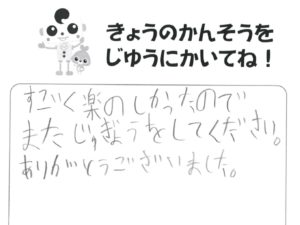 きょうのかんそうを
じゆうにかいてね！
すごく楽のしかったので
またじゅぎょうをしてください。
ありがとうございました。